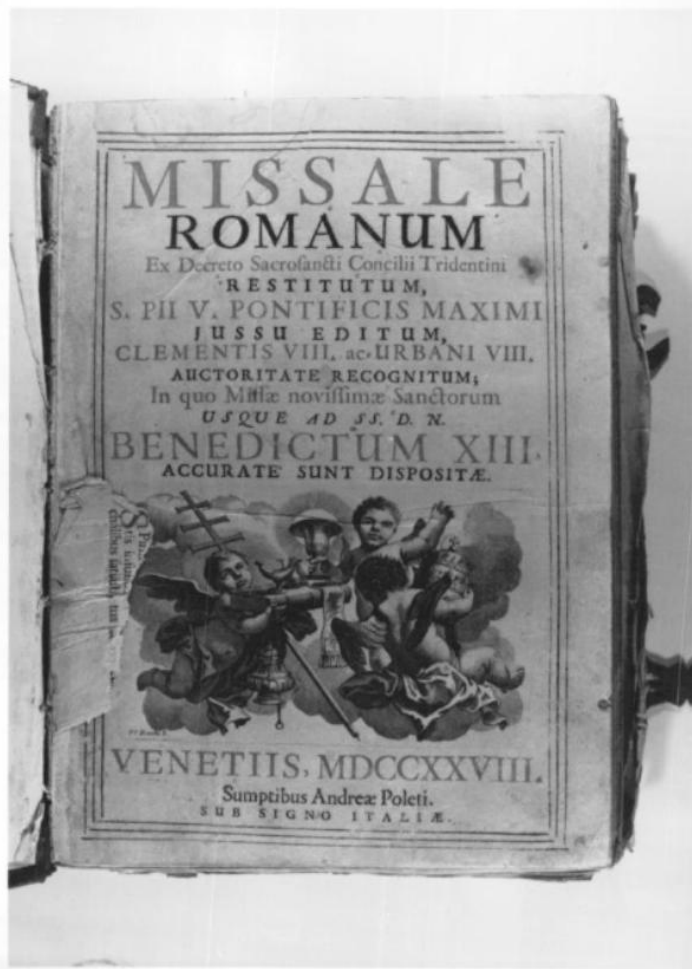 MISSALE
ROMANUM
Ex Decreto Sacrosancti Concilii Tridentini
RESTITUTUM,
S. PII V. PONTIFICIS MAXIMI
JUSSU EDITUM,
CLEMENTIS VIII. ac URBANI VIII.
AUCTORITATE RECOGNITUM;
In quo Missæ novissimæ Sanctorum
USQUE AD SS. D. N.
BENEDICTUM XIII.
ACCURATE SUNT DISPOSITÆ.
VENETIIS, MDCCXXVIII.
Sumptibus Andreæ Poleti.
SUB SIGNO ITALIÆ.